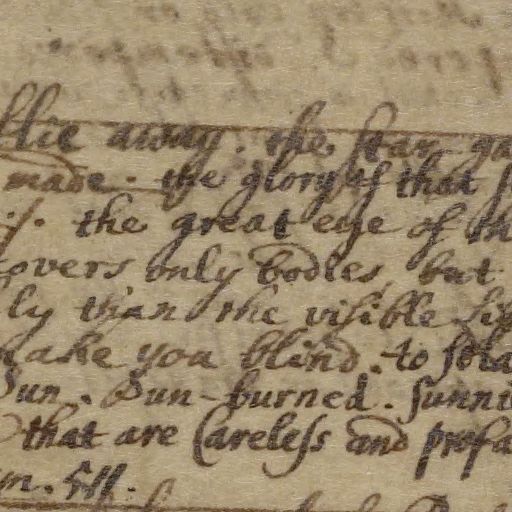 flie away. the star ga
made. the glory of that s
. the great eye of th
covers only bodies, but
ly than the visible
make you blind. to
Sun. Sun-burned. sunni
that are Careless and profa